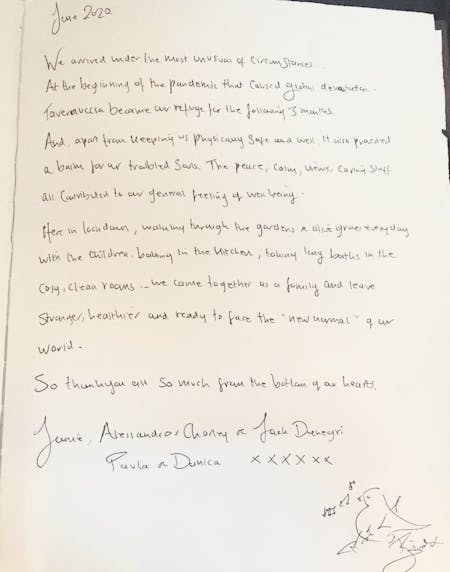 June 2020
We arrived under the most unusual of circumstances.
At the beginning of the pandemic that caused global devastation.
Tavernaccia became our refuge for the following 3 months.
And, apart from keeping us physically safe and well, it also provided
a balm for our troubled souls. The peace, calm, views, caring staff
all contributed to our general feeling of well being.
Here in lockdown, walking through the gardens & olive groves everyday
with the children, baking in the kitchen, taking long baths in the
cosy, clean rooms... we came together as a family and leave
stronger, healthier and ready to face the "new normal" of our
world.
So thankyou all so much from the bottom of our hearts.
Jamie, Alessandro, Charley & Jack
Paula & Danica xxxxxx